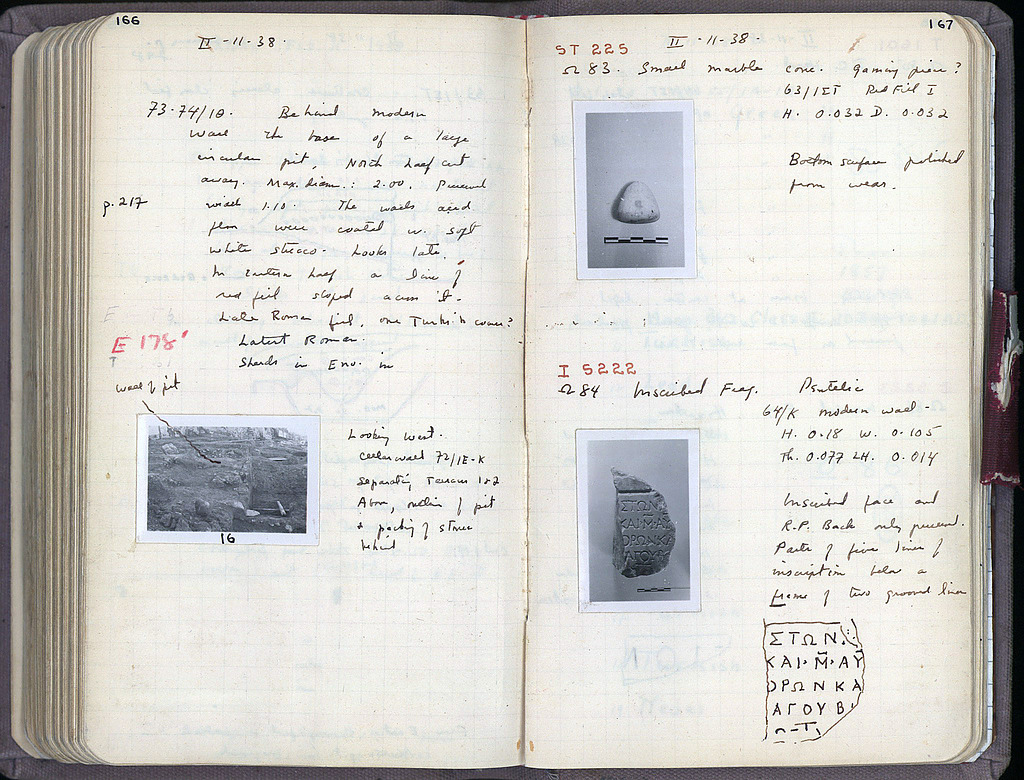 166
II - 11 - 38.
73-74/IΘ. Behind modern
wall the base of a large
circular pit, North half cut
away. Max. diam.: 2.00. Preserved
width 1.10. The walls and
p. 217
floor were coated w. soft
white stucco. Looks late.
In eastern half a line of
red fill sloped across it.
Late Roman fill, one Turkish coin?
E 178'
Latest Roman.
Sherds in Env. in
wall of pit
Looking west.
Cellar wall 72/IE-K
separating Terraces 1 & 2
Above, outline of pit
& packing of stones
behind
16
167
II - 11 - 38
ST 225
Ω 83. Small marble cone. gaming piece?
63/IΣΤ Red Fill I
H. 0.032 D. 0.032
Bottom surface polished
from wear.
I 5222
Ω 84 Inscribed Frag. Pentelic
64/K modern wall -
H. 0.18 W. 0.105
Th. 0.077 LH. 0.014
Inscribed face and
R.P. Back only preserved.
Parts of five lines of
inscription below a
frame of two ground lines
ΣΤΩΝ.
ΚΑΙ·Μ·ΑΥ
ΟΡΩΝΚΑ
ΑΓΟΥΒ
ΣΤΩΝ
ΚΑΙ·Μ·ΑΥ
ΟΡΩΝΚΑ
ΑΓΟΥΒ